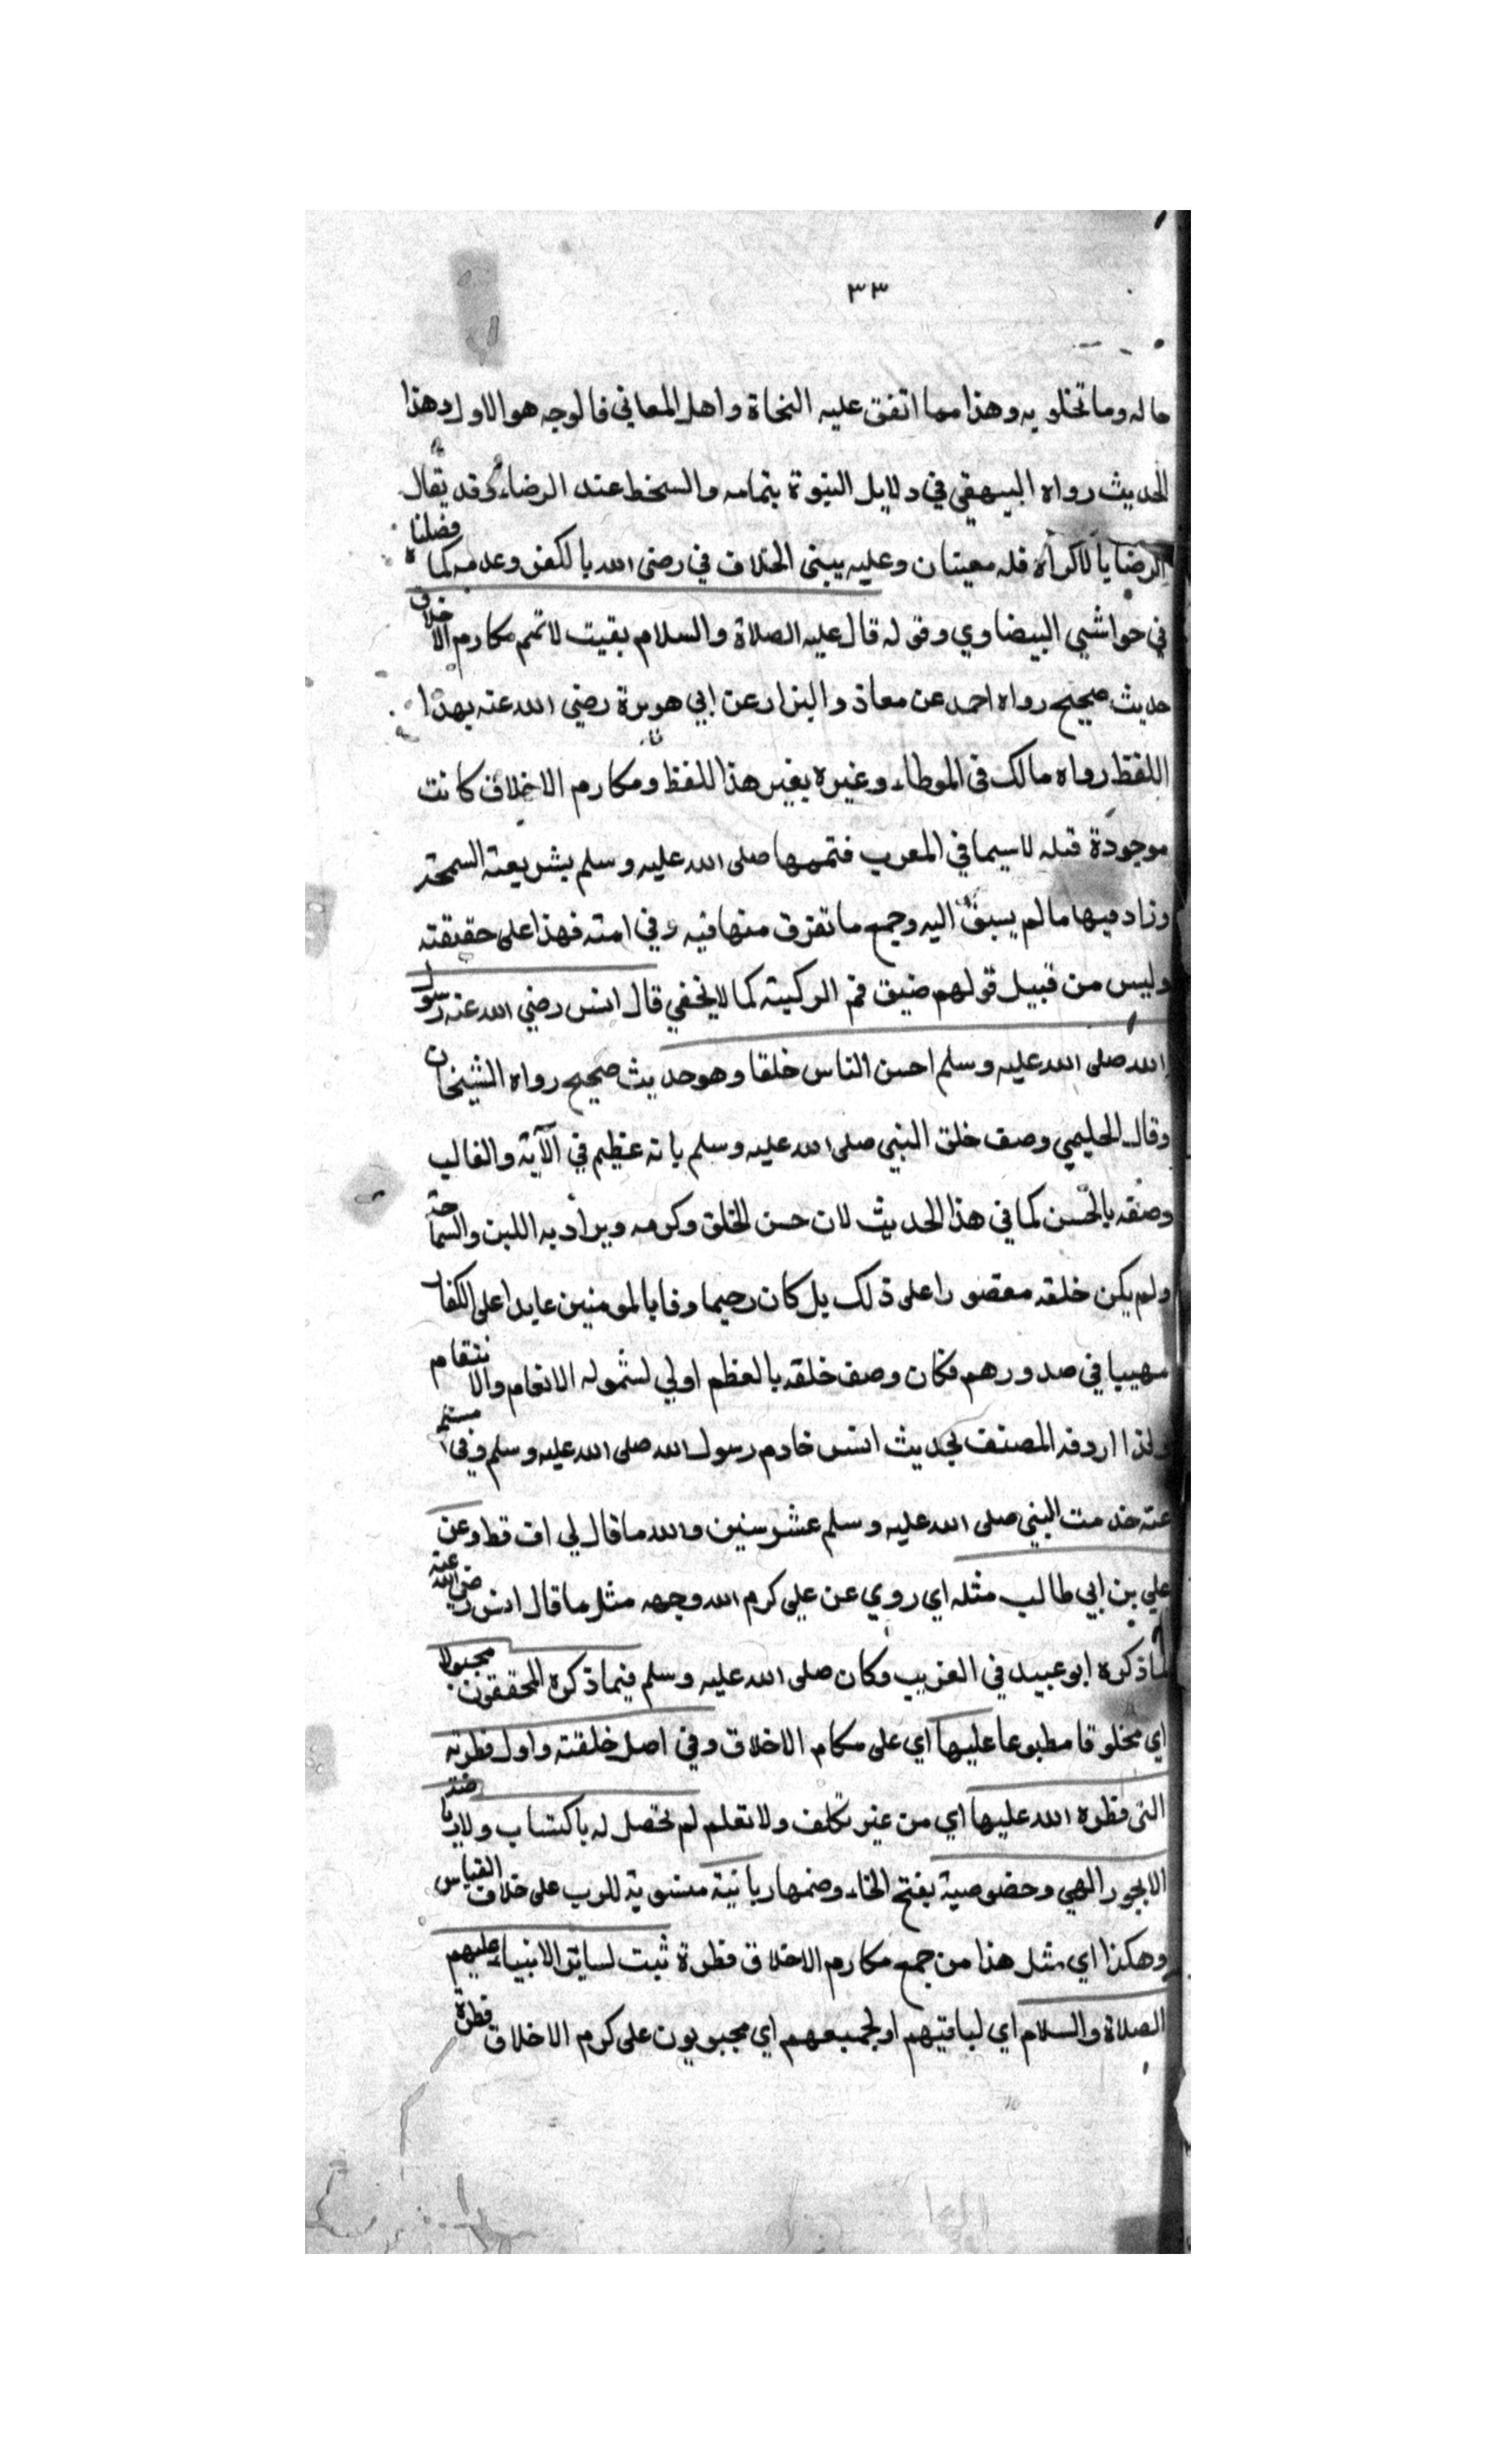 ٣٣
حاله وما تخلو به وهذا مما اتفق عليه النحاة واهل المعاني فالوجه هو الاول وهذا
الحديث رواه البيهقي في دلايل النبوة بتمامه والسخط عند الرضاء وقد يقال
الرضا بالاكراه فله معينان وعليه يبنى الخلاف في رضى الله بالكفر وعدمه كما فصلناه
في حواشي البيضاوي وقوله قال عليه الصلاة والسلام بقيت لاتمم مكارم الاخلاق
حديث صحيح رواه احمد عن معاذ والبزار عن ابي هريرة رضي الله عنه بهذا
اللفظ رواه مالك في الموطاء وغيره بغير هذا اللفظ ومكارم الاخلاق كانت
موجودة قبله لاسيما في العرب فتممها صلى الله عليه وسلم بشريعته السمحة
وزاد فيها مالم يسبق اليه وجمع ما تفرق منها فيه وفي امته فهذا على حقيقته
وليس من قبيل قولهم ضيق فم الركيته كما لا يخفي قال انس رضي الله عنه رسول
الله صلى الله عليه وسلم احسن الناس خلقا وهو حديث صحيح رواه الشيخان
وقال الحليمي وصف خلق النبي صلى الله عليه وسلم بانه عظيم في الآية والغالب
وصفه بالحسن كما في هذا الحديث لان حسن الخلق وكرمه ويراد به اللين والسماحة
ولم يكن خلقه مقصورا على ذلك بل كان رحيما وفا بالمومنين عايدا على الكفار
مهيبا في صدورهم فكان وصف خلقه بالعظم اولي لشموله الانعام والانتقام
ولذا اردفه المصنف بحديث انس خادم رسول الله صلى الله عليه وسلم وفي مسلم
عنه خدمت النبي صلى الله عليه وسلم عشر سنين والله ما قال لي اف قط وعن
علي بن ابي طالب مثله اي روي عن علي كرم الله وجهه مثل ما قال انس رضي الله عنه
ذكره ابو عبيد في الغريب وكان صلى الله عليه وسلم فيما ذكره المحققون مجبولا
اي مخلوقا مطبوعا عليها اي على مكام الاخلاق وفي اصل خلقته واول فطرته
التى فطره الله عليها اي من غير تكلف ولا تعلم لم تحصل له باكتساب ولا رياضة
الا بجود الهي وخصوصية بفتح الخاء وضمها ربانية منسوبة للرب على خلاف القياس
وهكذا اي مثل هذا من جمع مكارم الاخلاق فطرة ثبت لساير الانبياء عليهم
الصلاة والسلام اي لباقيهم او لجميعهم اي مجبوبون على كرم الاخلاق فطرة